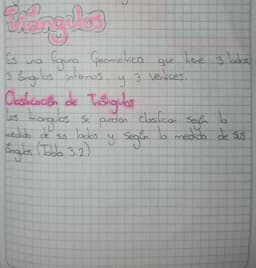 Triángulos
Es una figura Geométrica que tiene 3 lados,
3 ángulos internos y 3 vértices.
Clasificación de Triángulos
Los triangulos se pueden clasificar según la
medida de sus lados y según la medida de sus
ángulos (Tabla 3.2)